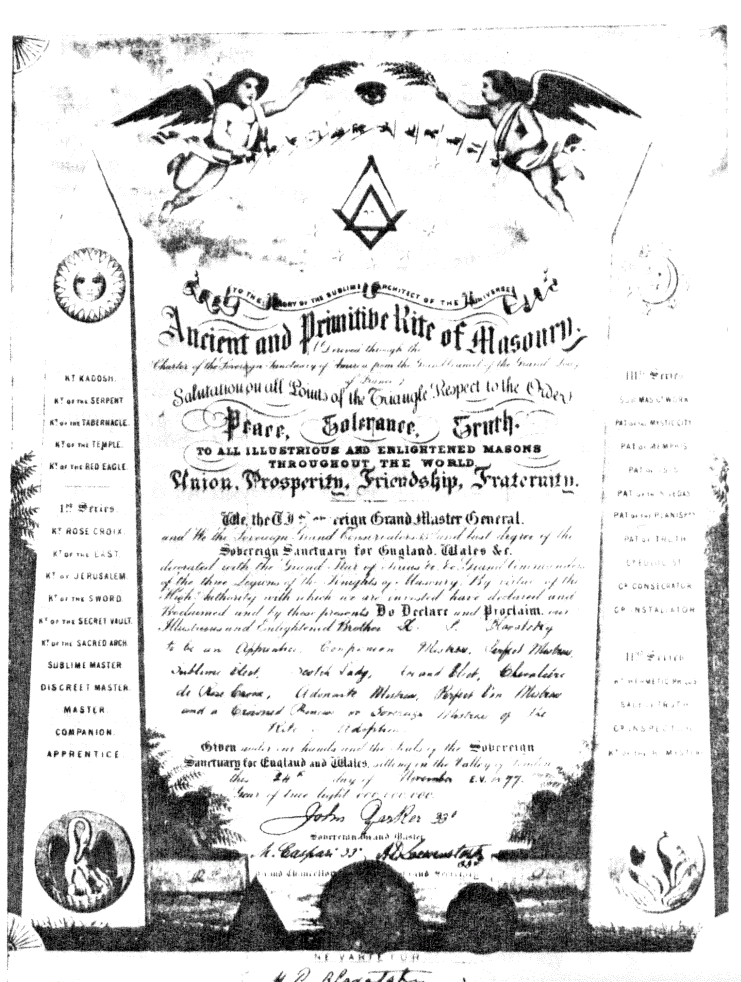 TO THE GLORY OF THE SUBLIME ARCHITECT OF THE UNIVERSE
Ancient and Primitive Rite of Masonry.
(Derived through the
Charter of the Sovereign Sanctuary of America from the Grand Council of the Grand Lodge
of France)
Salutation on all Points of the Triangle Respect to the Order
Peace, Tolerance, Truth.
TO ALL ILLUSTRIOUS AND ENLIGHTENED MASONS
THROUGHOUT THE WORLD
Union, Prosperity, Friendship, Fraternity.
We, the Grand Master General.
and We the Sovereign Grand Conservators and last degree of the
Sovereign Sanctuary for England, Wales &c.
decorated with the Grand Star of Sirius &c &c Grand Commanders
of the three Legions of the Knights of Masonry, By virtue of the
High Authority with which we are invested have declared and
Proclaimed and by these presents Do Declare and Proclaim, our
Illustrious and Enlightened Brother H. P. Blavatsky
to be an Apprentice, Companion, Mistress, Perfect Mistress,
Sublime Elect, Scotch Lady, Grand Elect, Chevalière
de Rose Croix, Adonaite Mistress, Perfect Mistress
and a Crowned Princess of the
Rite of Adoption.
Given under our hands and the Seals of the Sovereign
Sanctuary for England and Wales, sitting in the Valley of London
this 24th day of November E.V. 1877
Year of true light 000,000,000.
John Yarker 33°
Sovereign Grand Master
M. Caspari 33°. A.D. Loewenstark
Grand Chancellor Grand Secretary
KT KADOSH.
KT OF THE SERPENT
KT OF THE TABERNACLE.
KT OF THE TEMPLE.
KT OF THE RED EAGLE.
1st Series
KT ROSE CROIX.
KT OF THE EAST.
KT OF JERUSALEM.
KT OF THE SWORD.
KT OF THE SECRET VAULT.
KT OF THE SACRED ARCH.
SUBLIME MASTER
DISCREET MASTER.
MASTER.
COMPANION.
APPRENTICE
IIIrd Series
PAT OF THE MYSTIC CITY
PAT OF MEMPHIS
PAT OF ISIS
PAT OF THE VEDAS
PAT OF THE PLANISPH
PAT OF TRUTH
GD CONSECRATOR
GD INSTALLATOR
IInd Series
KT HERMETIC PHILOS
SAGE OF TRUTH
GD INSPECTOR
NE VARIETUR
H P Blavatsky